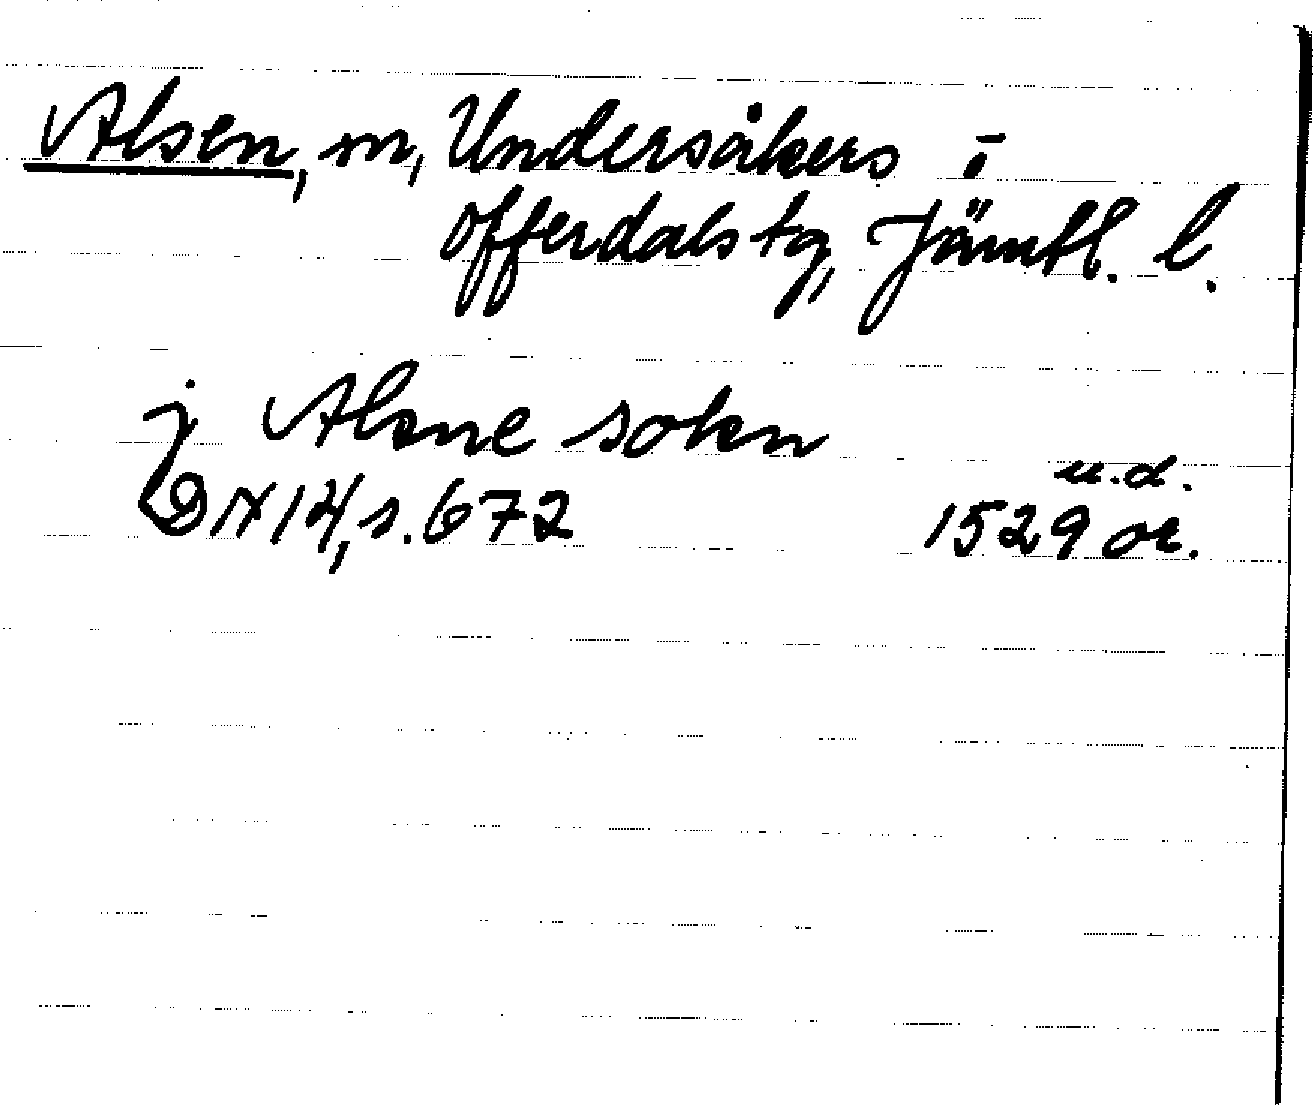 Alsen, sn, Undersåkers o
Offerdals tg, Jämtl. l.
j Alsne sokn
u.d.
DN 14, s. 672 1529 or.